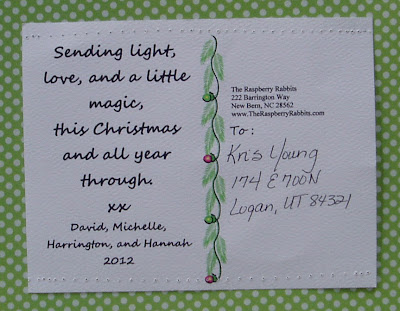 Sending light,
love, and a little
magic,
this Christmas
and all year
through.
xx
David, Michelle,
Harrington, and Hannah
2012
The Raspberry Rabbits
222 Barrington Way
New Bern, NC 28562
www.TheRaspberryRabbits.com
To:
Kris Young
174 E 700N
Logan, UT 84321